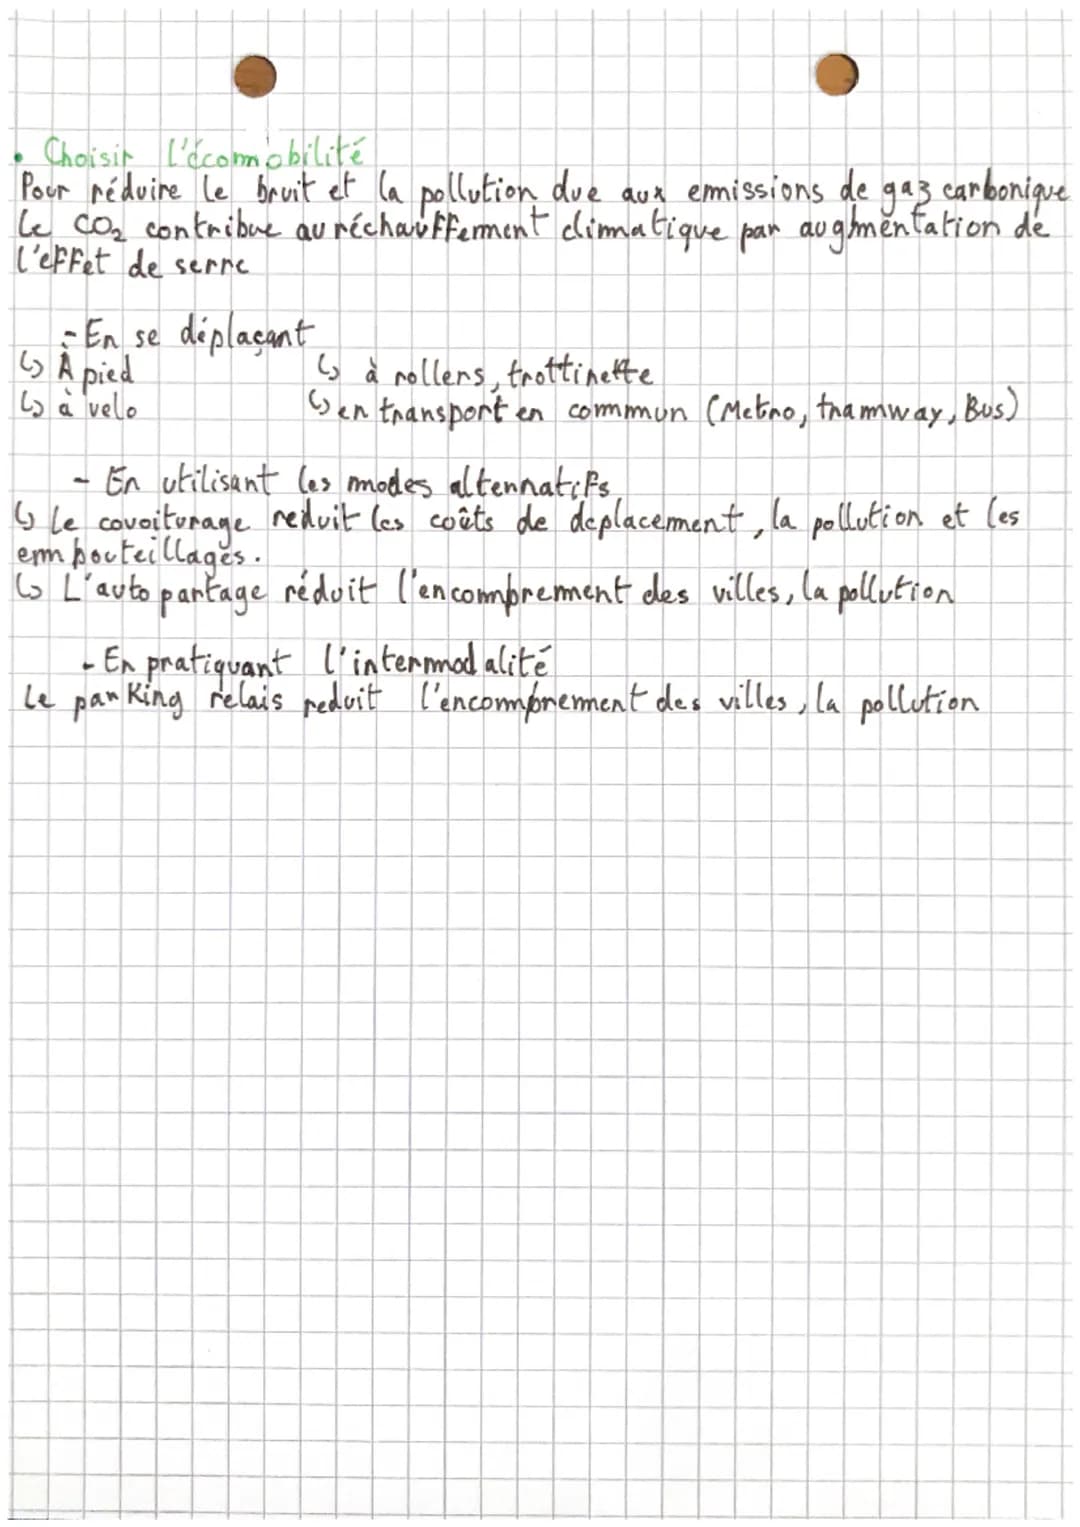 • Choisir l'écomobilité
Pour réduire le bruit et la pollution due aux emissions de gaz carbonique
Le CO₂ contribue au réchauffement climatique par augmentation de
l'effet de serre
- En se déplaçant
↳ À pied ↳ à rollers, trottinette
↳ à velo ↳ en transport en commun (Metro, tramway, Bus)
- En utilisant les modes alternatifs
↳ Le covoiturage reduit les coûts de deplacement, la pollution et les
embouteillages.
↳ L'auto partage réduit l'encombrement des villes, la pollution
- En pratiquant l'intermodalité
Le parKing relais reduit l'encombrement des villes, la pollution